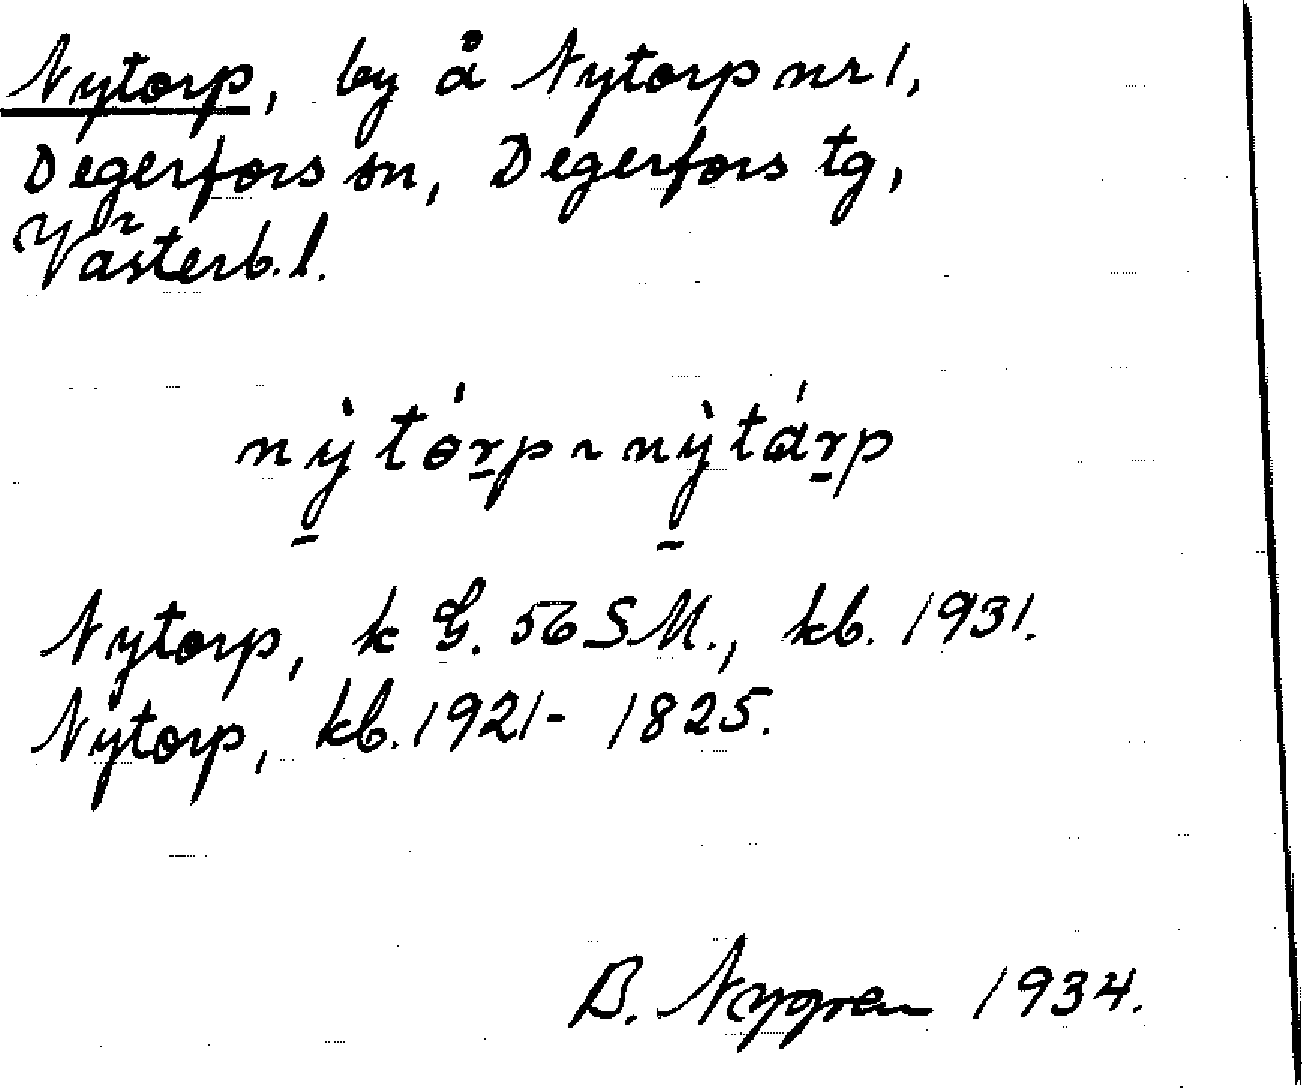 Nytorp, by å Nytorp nr 1,
Degerfors sn, Degerfors tg,
Västerb. l.
nỳtórp ~ nỳtárp
Nytorp, k G. 56 SM., kb. 1931.
Nytorp, kb. 1921 - 1825.
B. Nygren 1934.